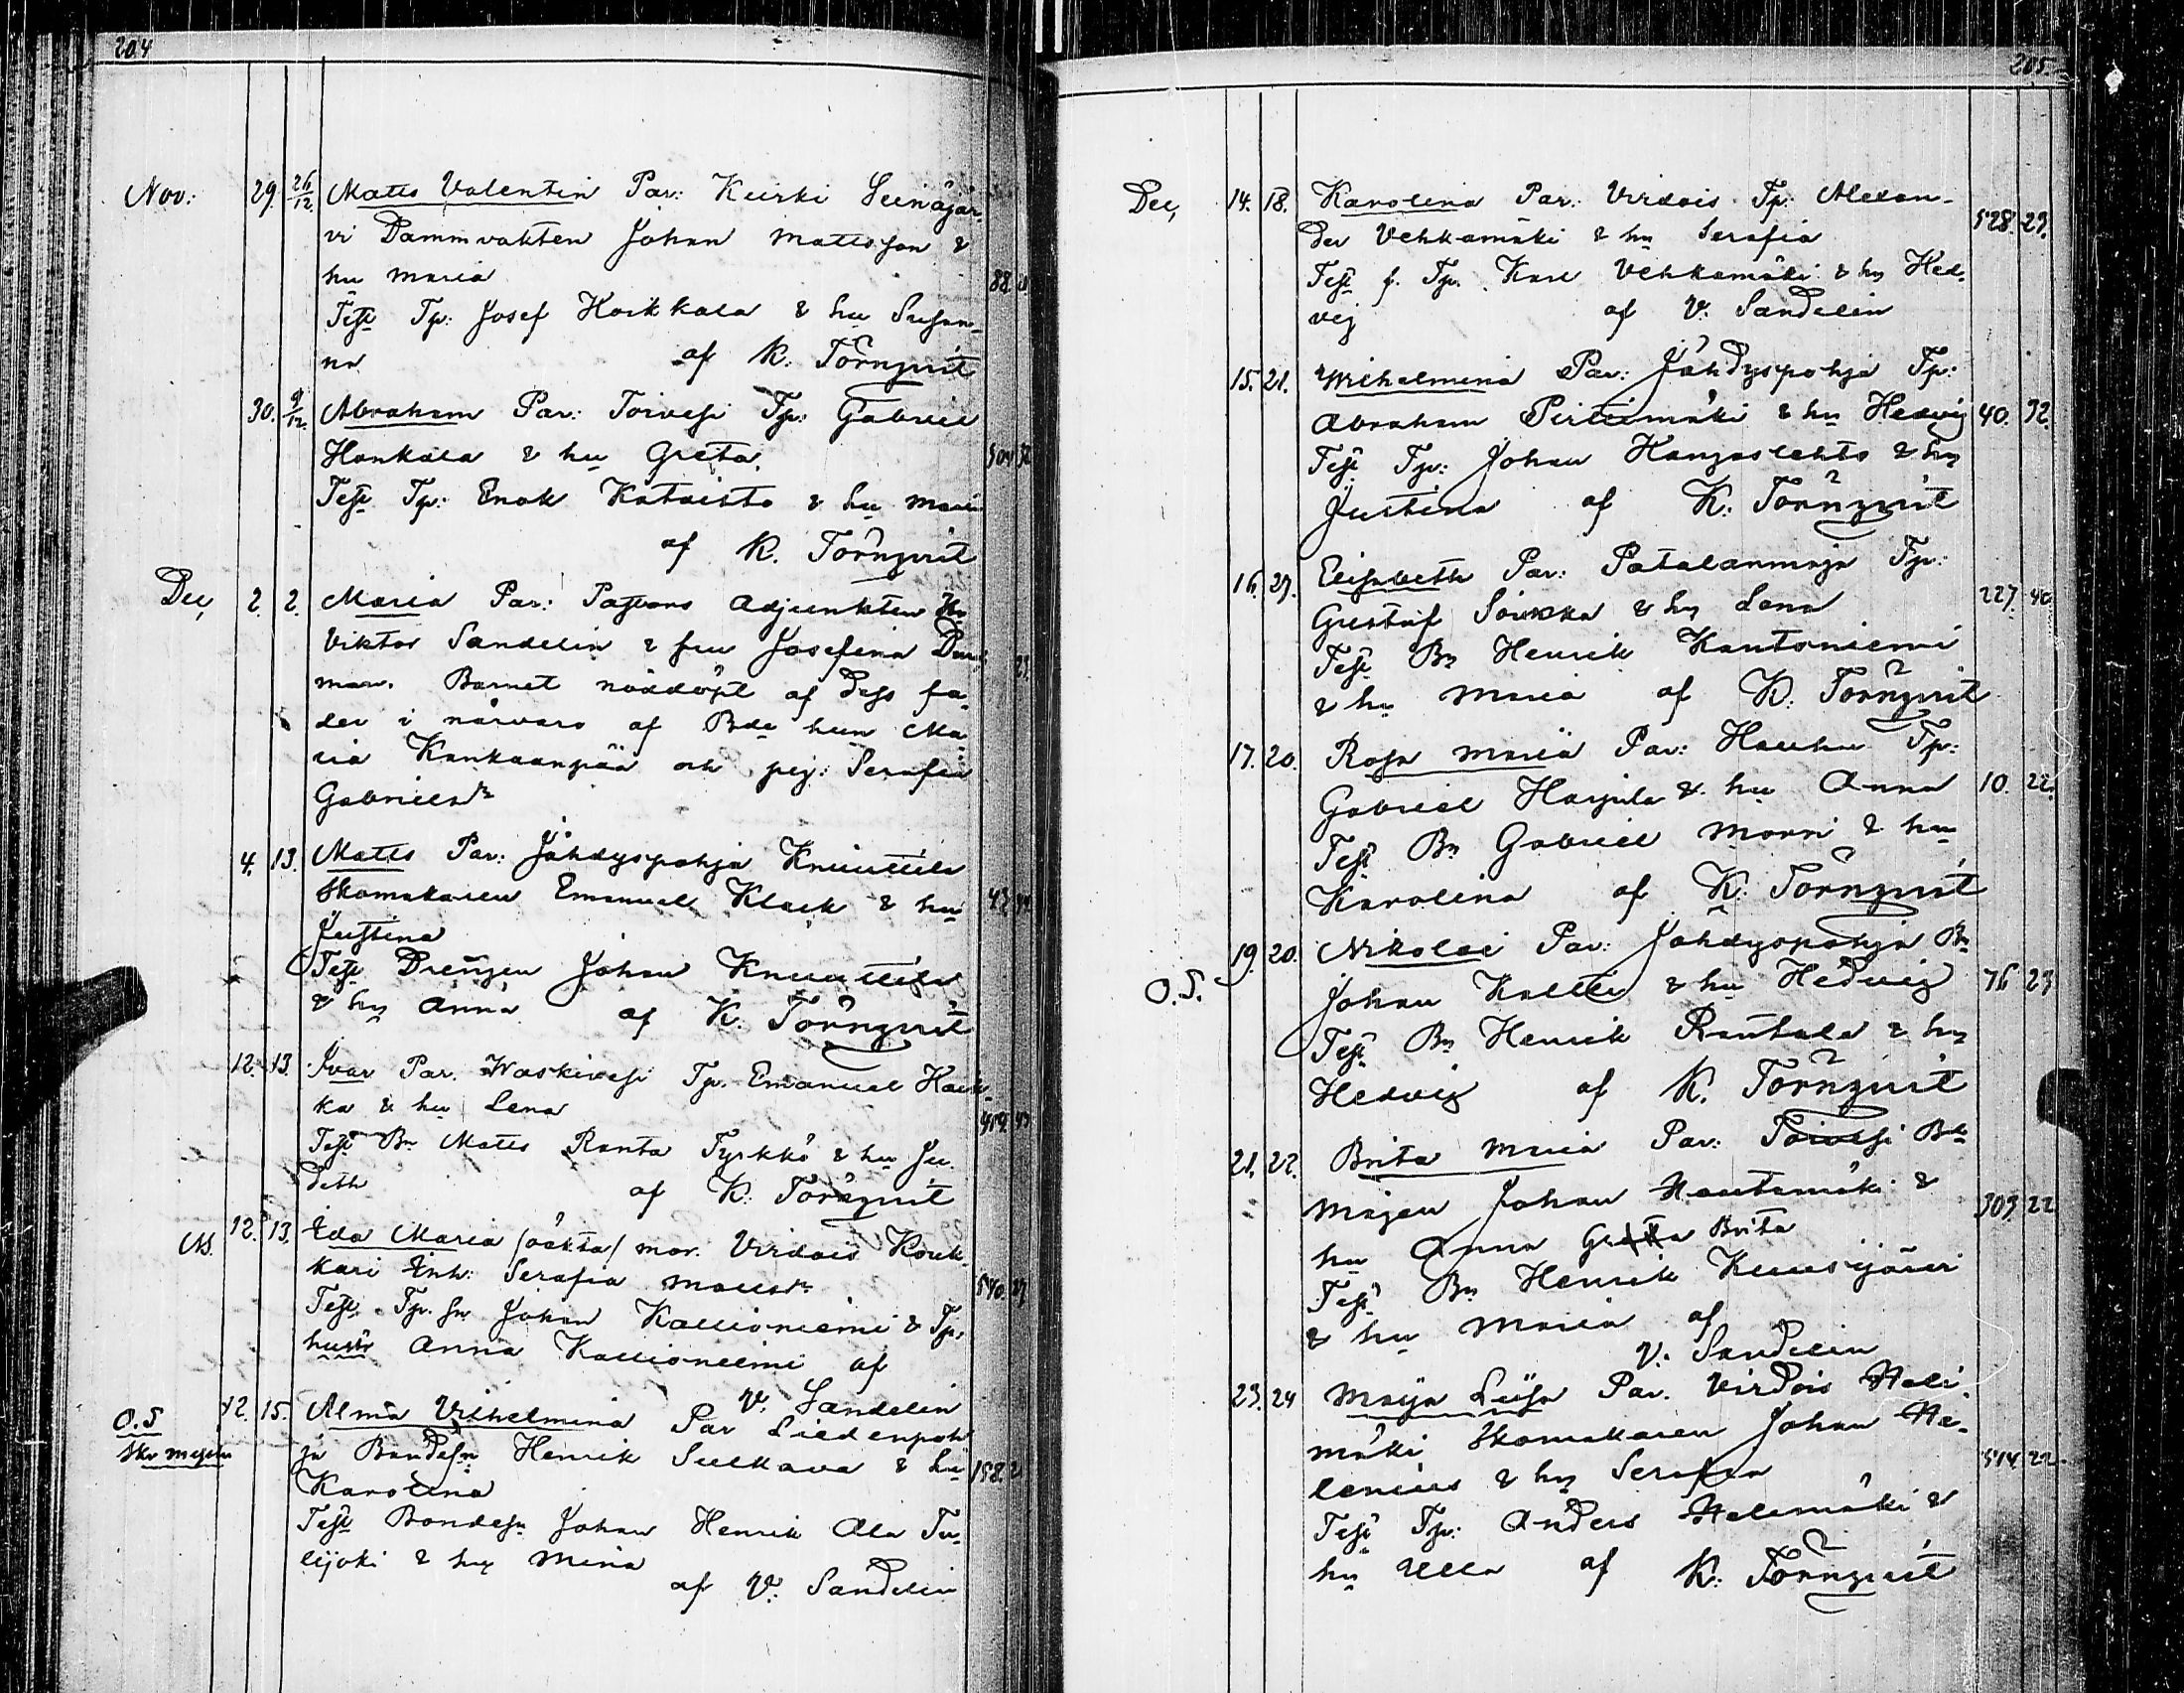 204
Nov: 29. 26/12. Matts Valentin Par: Keiski Seinäjär-
vi Dammvakten Johan Mattsson &
hu Maria 88.
Test Tp: Josef Koikkala & hu Susan-
na af K. Törnqvist
30. 9/12. Abraham Par: Toivesi Tp: Gabriel
Hankala & hu Greta. 304 32
Test Tp: Enok Kataisto & hu Maria
af K. Törnqvist
Dec, 2. 2. Maria Par: Pastors Adjunkten Hr
Viktor Sandelin & fru Josefina
man. Barnet nöddöpt af dess fa-
der i närvaro af Bde hun Ma-
ria Kankaanpää och pig: Serafia
Gabrielsdr
4. 13. Matts Par: Jähdyspohja Knuuttila
Skomakaren Emanuel Klack & hu 43
Justina
Test Drengen Johan Knuuttila
& hu Anna af K. Törnqvist
12. 13. Ivar Par. Waskivesi Tp. Emanuel Hauk-
ka & hu Lena
Test Bn Matts Ranta Tyrkkö & hu Ju-
dith af K. Törnqvist
12. 13. Ida Maria (oäkta) mor. Virdois Kouk-
kari Inh: Serafia Mattsdr 540.
Test. Tp. sn Johan Kallioniemi & Tp.
hustr Anna Kallioniemi af
V. Sandelin
O.S 12. 15. Alma Vilhelmina Par Liedenpoh-
ja Bondesn Henrik Sulkava & hu 158
Karolina
Test Bondesn Johan Henrik Ala Tu-
lijoki & hu Mina
af V. Sandelin
205.
Dec, 14. 18. Karolina Par: Virdois Tp: Alexan-
der Vehkamäki & hu Serafia 528. 23.
Test f. Tp. Karl Vehkamäki & hu Hed-
vig af V. Sandelin
15. 21. Wilhelmina Par: Jähdyspohja Tp:
Abraham Perttimäki & hu Hedvig 40. 32.
Test Tp: Johan Kangaslehto & hu
Justina af K. Törnqvist
16. 27. Elisabeth Par: Patalanmaja Tp:
Gustaf Soukka & hu Lena 227. 40
Test Bn Henrik Kantoniemi
& hu Maria af K. Törnqvist
17. 20. Rosa Maria Par: Hauhu Tp:
Gabriel Harjula & hu Anna 10. 22.
Test Bn Gabriel Morri & hu
Karolina af K. Törnqvist
19. 20. Nikolai Par: Jähdyspohja Bn
O.S. Johan Koltti & hu Hedvig 76 23
Test Bn Henrik Rantala & hu
Hedvig af K. Törnqvist
21. 22. Brita Maria Par: Toivesi Bde
mågen Johan Hautamäki & 303 22
hu Anna Greta Brita
Test Bn Henrik Kuusijärvi
& hu Maria af
V. Sandelin
23. 24 Maija Liisa Par. Virdois Hali-
mäki Skomakaren Johan He-
lenius & hu Serafia 514 22.
Test Tp: Anders Halimäki &
hu Ulla af K. Törnqvist